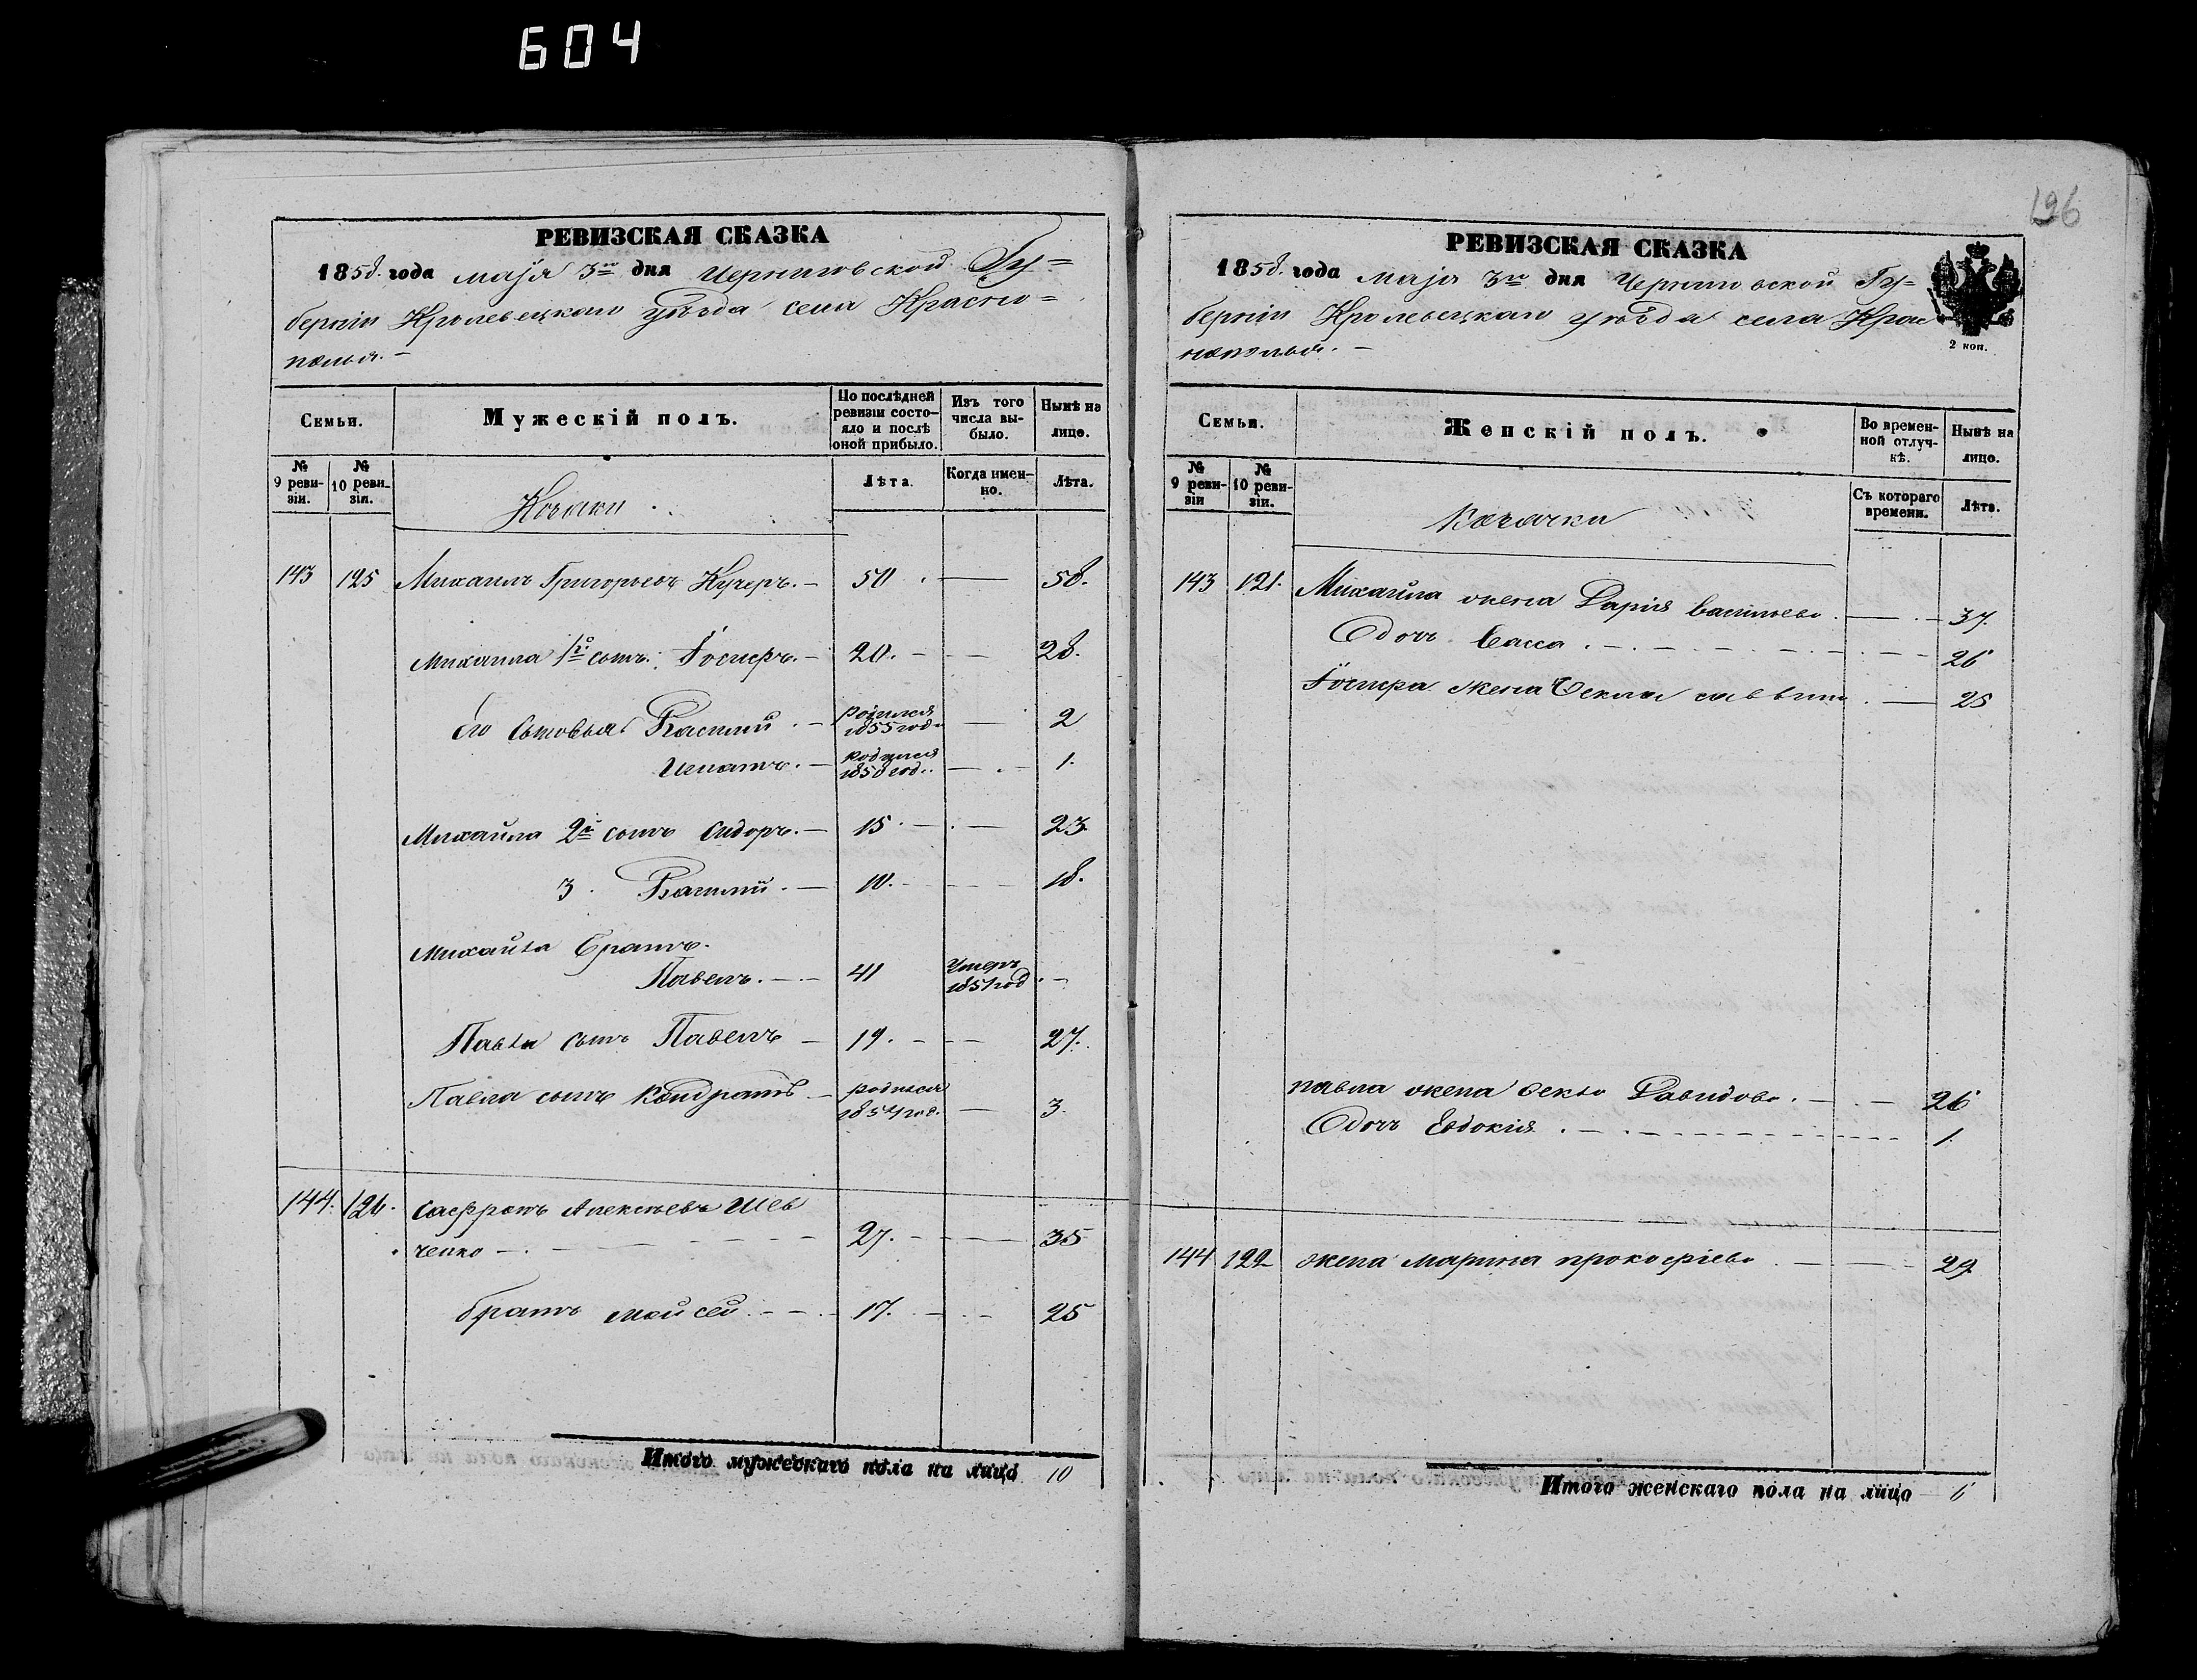 604
196
РЕВИЗСКАЯ СКАЗКА
1858 года маія 3го дня Черниговской Гу=
берніи Кролевецкаго уѣзда села Красно=
полья.
Семьи.
Мужескій полъ.
По послѣдней ревизіи состояло и послѣ оной прибыло.
Изъ того числа выбыло.
Нынѣ на лицо.
№ 9 ревизіи.
№ 10 ревизіи.
Козаки
Лѣта.
Когда именно.
Лѣта.
143 125 Михаилъ Григорьевъ Кучеръ. 50 58.
Михаила 1й сынъ 20. 28.
Его сыновья Василий родился 1855 года 2
Игнатъ. родился 1.
Михайла 2й сынъ Сидоръ. 15 23
3. Василий 10. 18.
Михайла братъ
Павелъ. 41 Умеръ 1851 год
Павла сынъ Павелъ 19. 27.
Павла сынъ Кондратъ родился 1854 год. 3.
144. 126. Сафронъ Алексѣевъ Шев
ченко 27. 35
братъ Мойсей 17. 25
Итого мужескаго пола на лицо 10
РЕВИЗСКАЯ СКАЗКА
1858 года маія 3го дня Черниговской Гу=
берніи Кролевецкаго уѣзда села Крас
нополья.
2 коп.
Семьи.
Женскій полъ.
Во временной отлучкѣ.
Нынѣ на лицо.
№ 9 ревизіи
№ 10 ревизіи.
Козачки
Съ котораго времени.
Лѣта.
143 121. Михайла жена Дарія Васильева 37.
дочь Васса 26
жена Фекла 25
Павла жена Фекла Давидова. 26
дочь Евдокія 1.
144 122 жена Марина Прокофіева 29
Итого женскаго пола на лицо 6